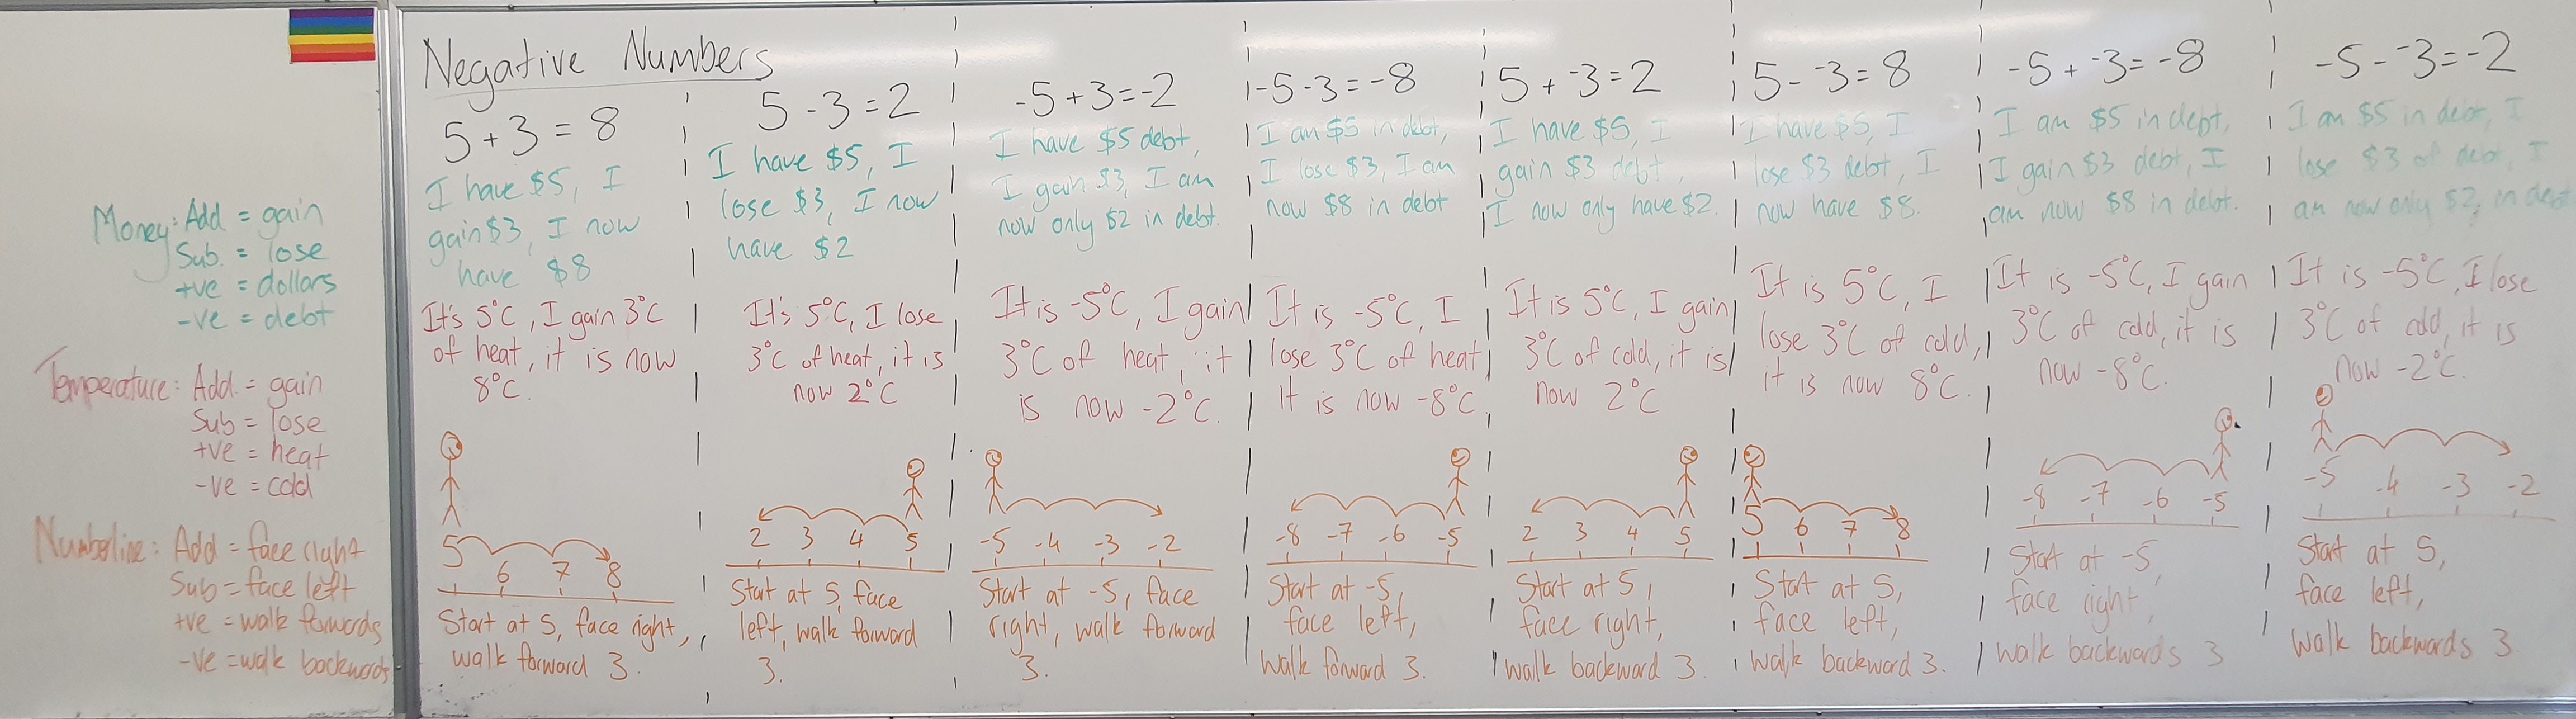 Money: Add = gain
Sub. = lose
+ve = dollars
-ve = debt
Temperature: Add = gain
Sub = lose
+ve = heat
-ve = cold
Numberline: Add = face right
Sub = face left
+ve = walk forwards
-ve = walk backwards
Negative Numbers
5 + 3 = 8
I have $5, I
gain $3, I now
have $8
It's 5°C, I gain 3°C
of heat, it is now
8°C.
5 6 7 8
Start at 5, face right,
walk forward 3.
5 - 3 = 2
I have $5, I
lose $3, I now
have $2
It's 5°C, I lose
3°C of heat, it is
now 2°C
2 3 4 5
Start at 5, face
left, walk forward
3.
-5 + 3 = -2
I have $5 debt,
I gain $3, I am
now only $2 in debt.
It is -5°C, I gain
3°C of heat, it
is now -2°C.
-5 -4 -3 -2
Start at -5, face
right, walk forward
3.
-5 - 3 = -8
I am $5 in debt,
I lose $3, I am
now $8 in debt
It is -5°C, I
lose 3°C of heat
It is now -8°C.
-8 -7 -6 -5
Start at -5,
face left,
walk forward 3.
5 + -3 = 2
I have $5, I
gain $3 debt,
I now only have $2.
It is 5°C, I gain
3°C of cold, it is
now 2°C
2 3 4 5
Start at 5,
face right,
walk backward 3.
5 - -3 = 8
I have $5, I
lose $3 debt, I
now have $8.
It is 5°C, I
lose 3°C of cold,
it is now 8°C.
5 6 7 8
Start at 5,
face left,
walk backward 3.
-5 + -3 = -8
I am $5 in debt,
I gain $3 debt, I
am now $8 in debt.
It is -5°C, I gain
3°C of cold, it is
now -8°C.
-8 -7 -6 -5
Start at -5,
face right,
walk backwards 3
-5 - -3 = -2
I am $5 in debt, I
lose $3 of debt, I
am now only $2 in debt
It is -5°C, I lose
3°C of cold, it is
now -2°C.
-5 -4 -3 -2
Start at 5,
face left,
walk backwards 3.